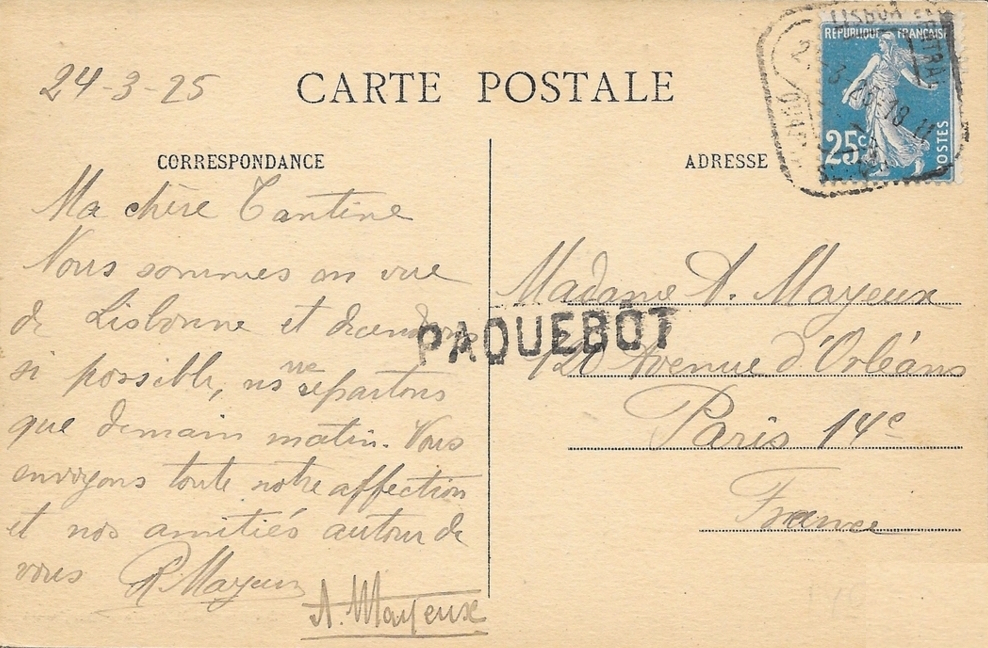 24-3-25
CARTE POSTALE
CORRESPONDANCE
ADRESSE
LISBOA CENTRAL
REPUBLIQUE FRANÇAISE
25c
POSTES
Ma chère Tantine
Nous sommes en vue
de Lisbonne et
si possible, ns ne repartons
que demain matin. Vous
envoyons toute notre affection
et nos amitiés autour de
vous
R. Mayeux
A. Mayeux
PAQUEBOT
Madame A. Mayeux
120 Avenue d'Orléans
Paris 14e
France